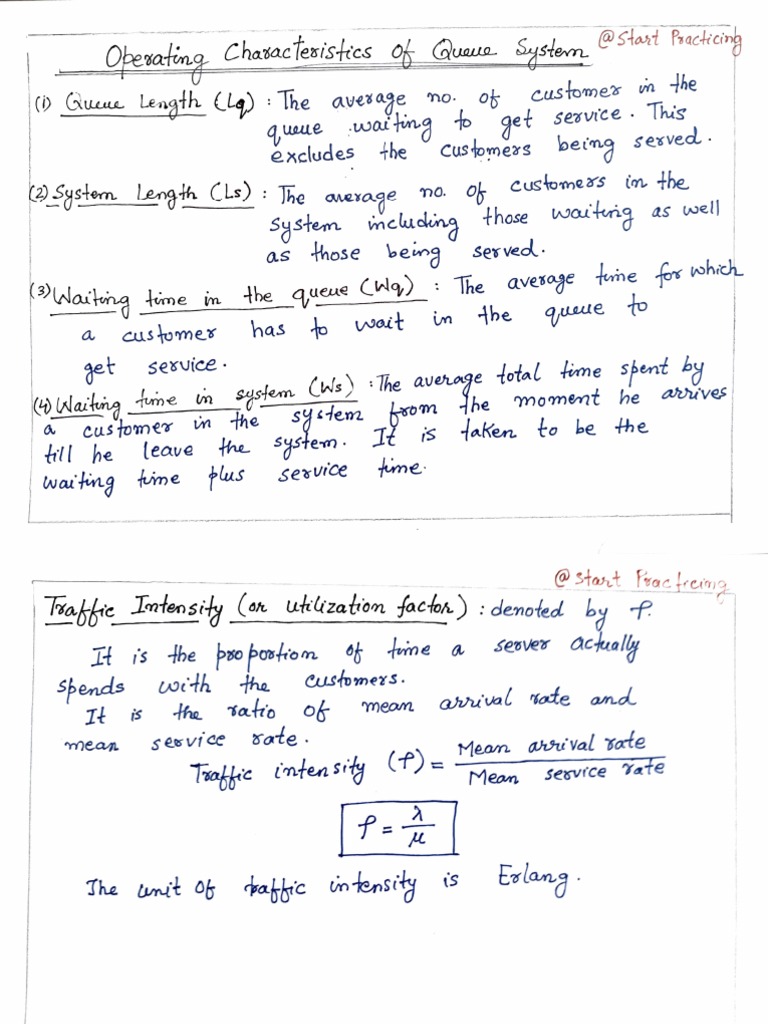 Operating Characteristics of Queue System @Start Practicing
(1) Queue Length (Lq) : The average no. of customer in the
queue waiting to get service. This
excludes the customers being served.
(2) System Length (Ls) : The average no. of customers in the
system including those waiting as well
as those being served.
(3) Waiting time in the queue (Wq) : The average time for which
a customer has to wait in the queue to
get service.
(4) Waiting time in system (Ws) : The average total time spent by
a customer in the system from the moment he arrives
till he leave the system. It is taken to be the
waiting time plus service time.
@Start Practicing
Traffic Intensity (or utilization factor) : denoted by ρ.
It is the proportion of time a server actually
spends with the customers.
It is the ratio of mean arrival rate and
mean service rate.
Traffic intensity (ρ) = Mean arrival rate
Mean service rate
ρ = λ
μ
The unit of traffic intensity is Erlang.